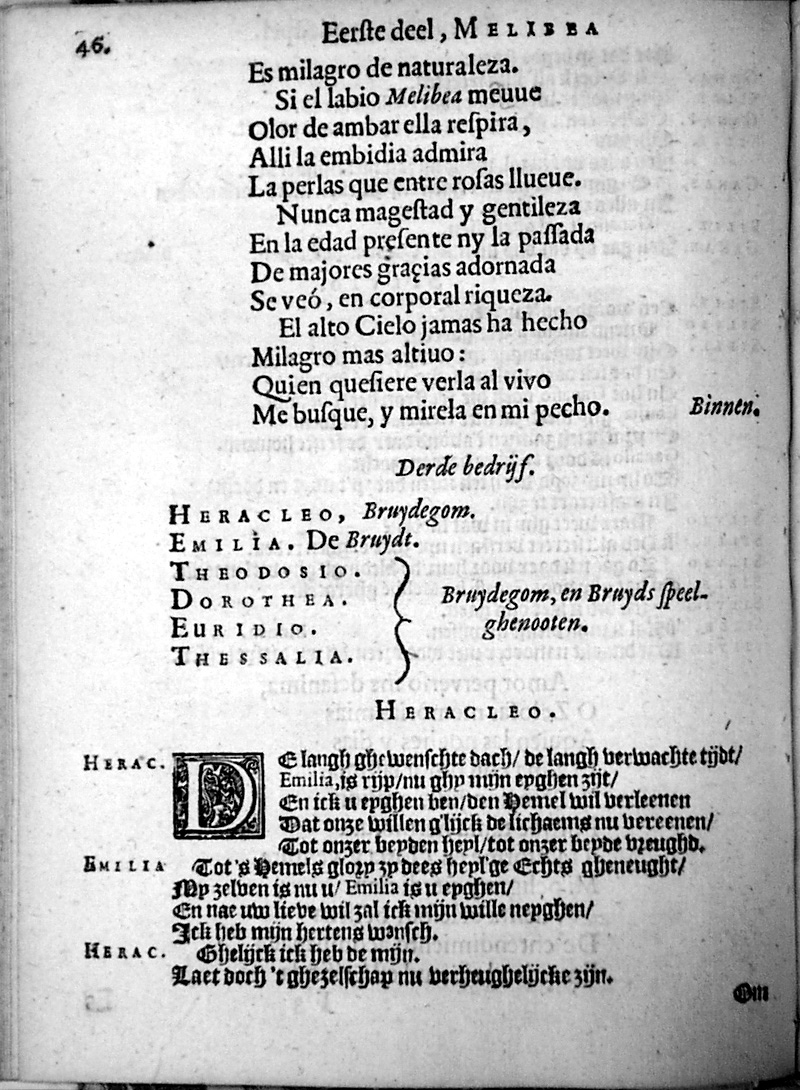 46.
Eerſte deel, MELIBEA
Es milagro de naturaleza.
Si el labio Melibea meuue
Olor de ambar ella reſpira,
Alli la embidia admira
La perlas que entre roſas llueue.
Nunca mageſtad y gentileza
En la edad preſente ny la paſſada
De majores graçias adornada
Se veó, en corporal riqueza.
El alto Cielo jamas ha hecho
Milagro mas altiuo:
Quien queſiere verla al vivo
Me buſque, y mirela en mi pecho. Binnen.
Derde bedrijf.
HERACLEO, Bruydegom.
EMILIA. De Bruydt.
THEODOSIO.
DOROTHEA.
EURIDIO.
THESSALIA.
Bruydegom, en Bruyds ſpeel-
ghenooten.
HERACLEO.
HERAC. DE langh ghewenſchte dach/ de langh verwachte tijdt/
Emilia, is rijp/nu ghy mijn eyghen zijt/
En ick u eyghen ben/den Hemel wil verleenen
Dat onze willen g'lijck de lichaems nu vereenen/
Tot onzer beyden heyl/tot onzer beyde vreughd.
EMILIA Tot 's Hemels glory zy dees heyl'ge Echts gheneught/
My zelven is nu u/ Emilia is u eyghen/
En nae uw lieve wil zal ick mijn wille neyghen/
Ick heb mijn hertens wensch.
HERAC. Ghelijck ick heb de mijn.
Laet doch 't ghezelſchap nu verheughelijcke zijn.
Om